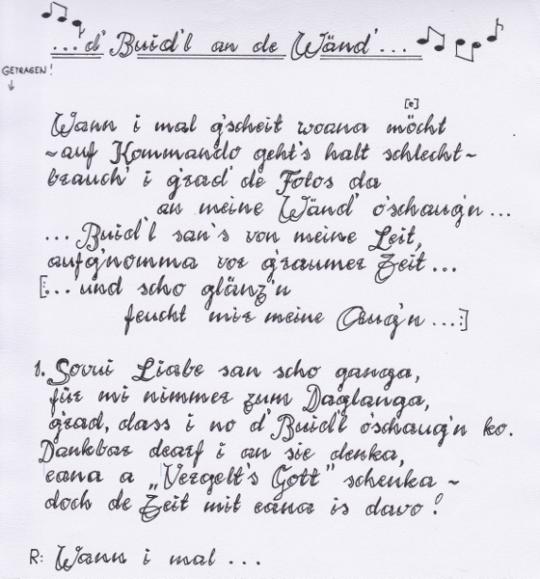 ...d' Buid'l an de Wänd'...
GETRAGEN!
[e]
Wann i mal g'scheit woana möcht
~auf Kommando geht's halt schlecht~
brauch' i g'rad' de Fotos da
an meine Wänd' o'schaug'n...
... Buid'l san's von meine Leit,
aufg'nomma vor g'raumer Zeit...
[:... und scho glänz'n
feucht mir meine Aug'n...:]
1. Sovui Liabe san scho ganga,
für mi nimmer zum Daglanga,
g'rad, dass i no d'Buid'l o'schaug'n ko.
Dankbar dearf i an sie denka,
eana a „Vergelt's Gott" schenka ~
doch de Zeit mit eana is davo!
R: Wann i mal ...